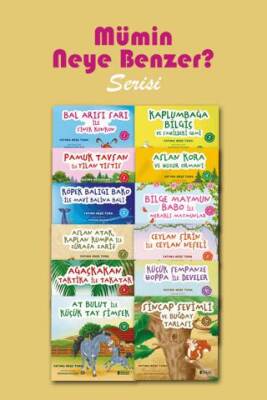 Mümin
Neye Benzer?
Serisi
BAL ARISI SARI
İLE
SİNEK KONKON
KAPLUMBAĞA
BİLGİŞ
VE SAHİLDEKİ GEMİ
PAMUK TAVŞAN
İLE YILAN TISTIS
ASLAN KORA
VE HUZUR ORMANI
FATMA NEŞE TURN
KÖPEK BALIĞI BAKO
İLE MAVİ BALİNA BALİ
BİLGE MAYMUN
BABO İLE
MERAKLI MAYMUNLAR
ASLAN ATAK,
KAPLAN KUMPA İLE
ZÜRAFA ZARİF
CEYLAN ŞİRİN
İLE CEYLAN NEŞELİ
AĞAÇKAKAN
TAKTİKA İLE TAKATAK
KÜÇÜK ŞEMPANZE
HOPPA İLE DEVELER
AT BULUT İLE
KÜÇÜK TAY ŞİMŞEK
SİNCAP SEVİMLİ
VE BUĞDAY
TARLASI